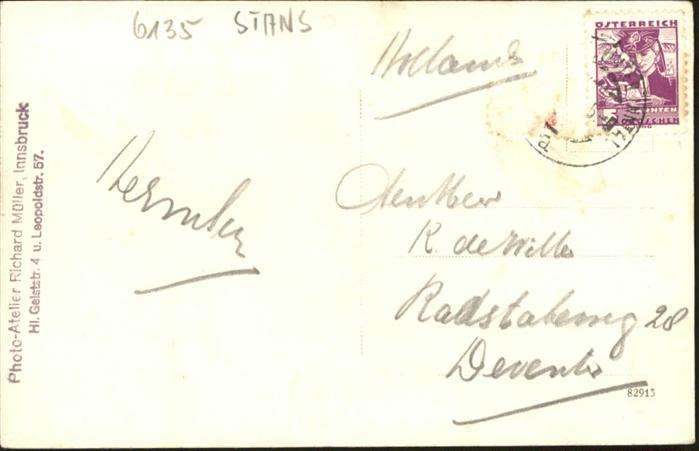 6135 STANS
Holland
ÖSTERREICH
Photo-Atelier Richard Müller, Innsbruck
Hl. Geiststr. 4 u. Leopoldstr. 57.
den Heer
R. de Wilde
Radstakeweg 28
Deventer
82913